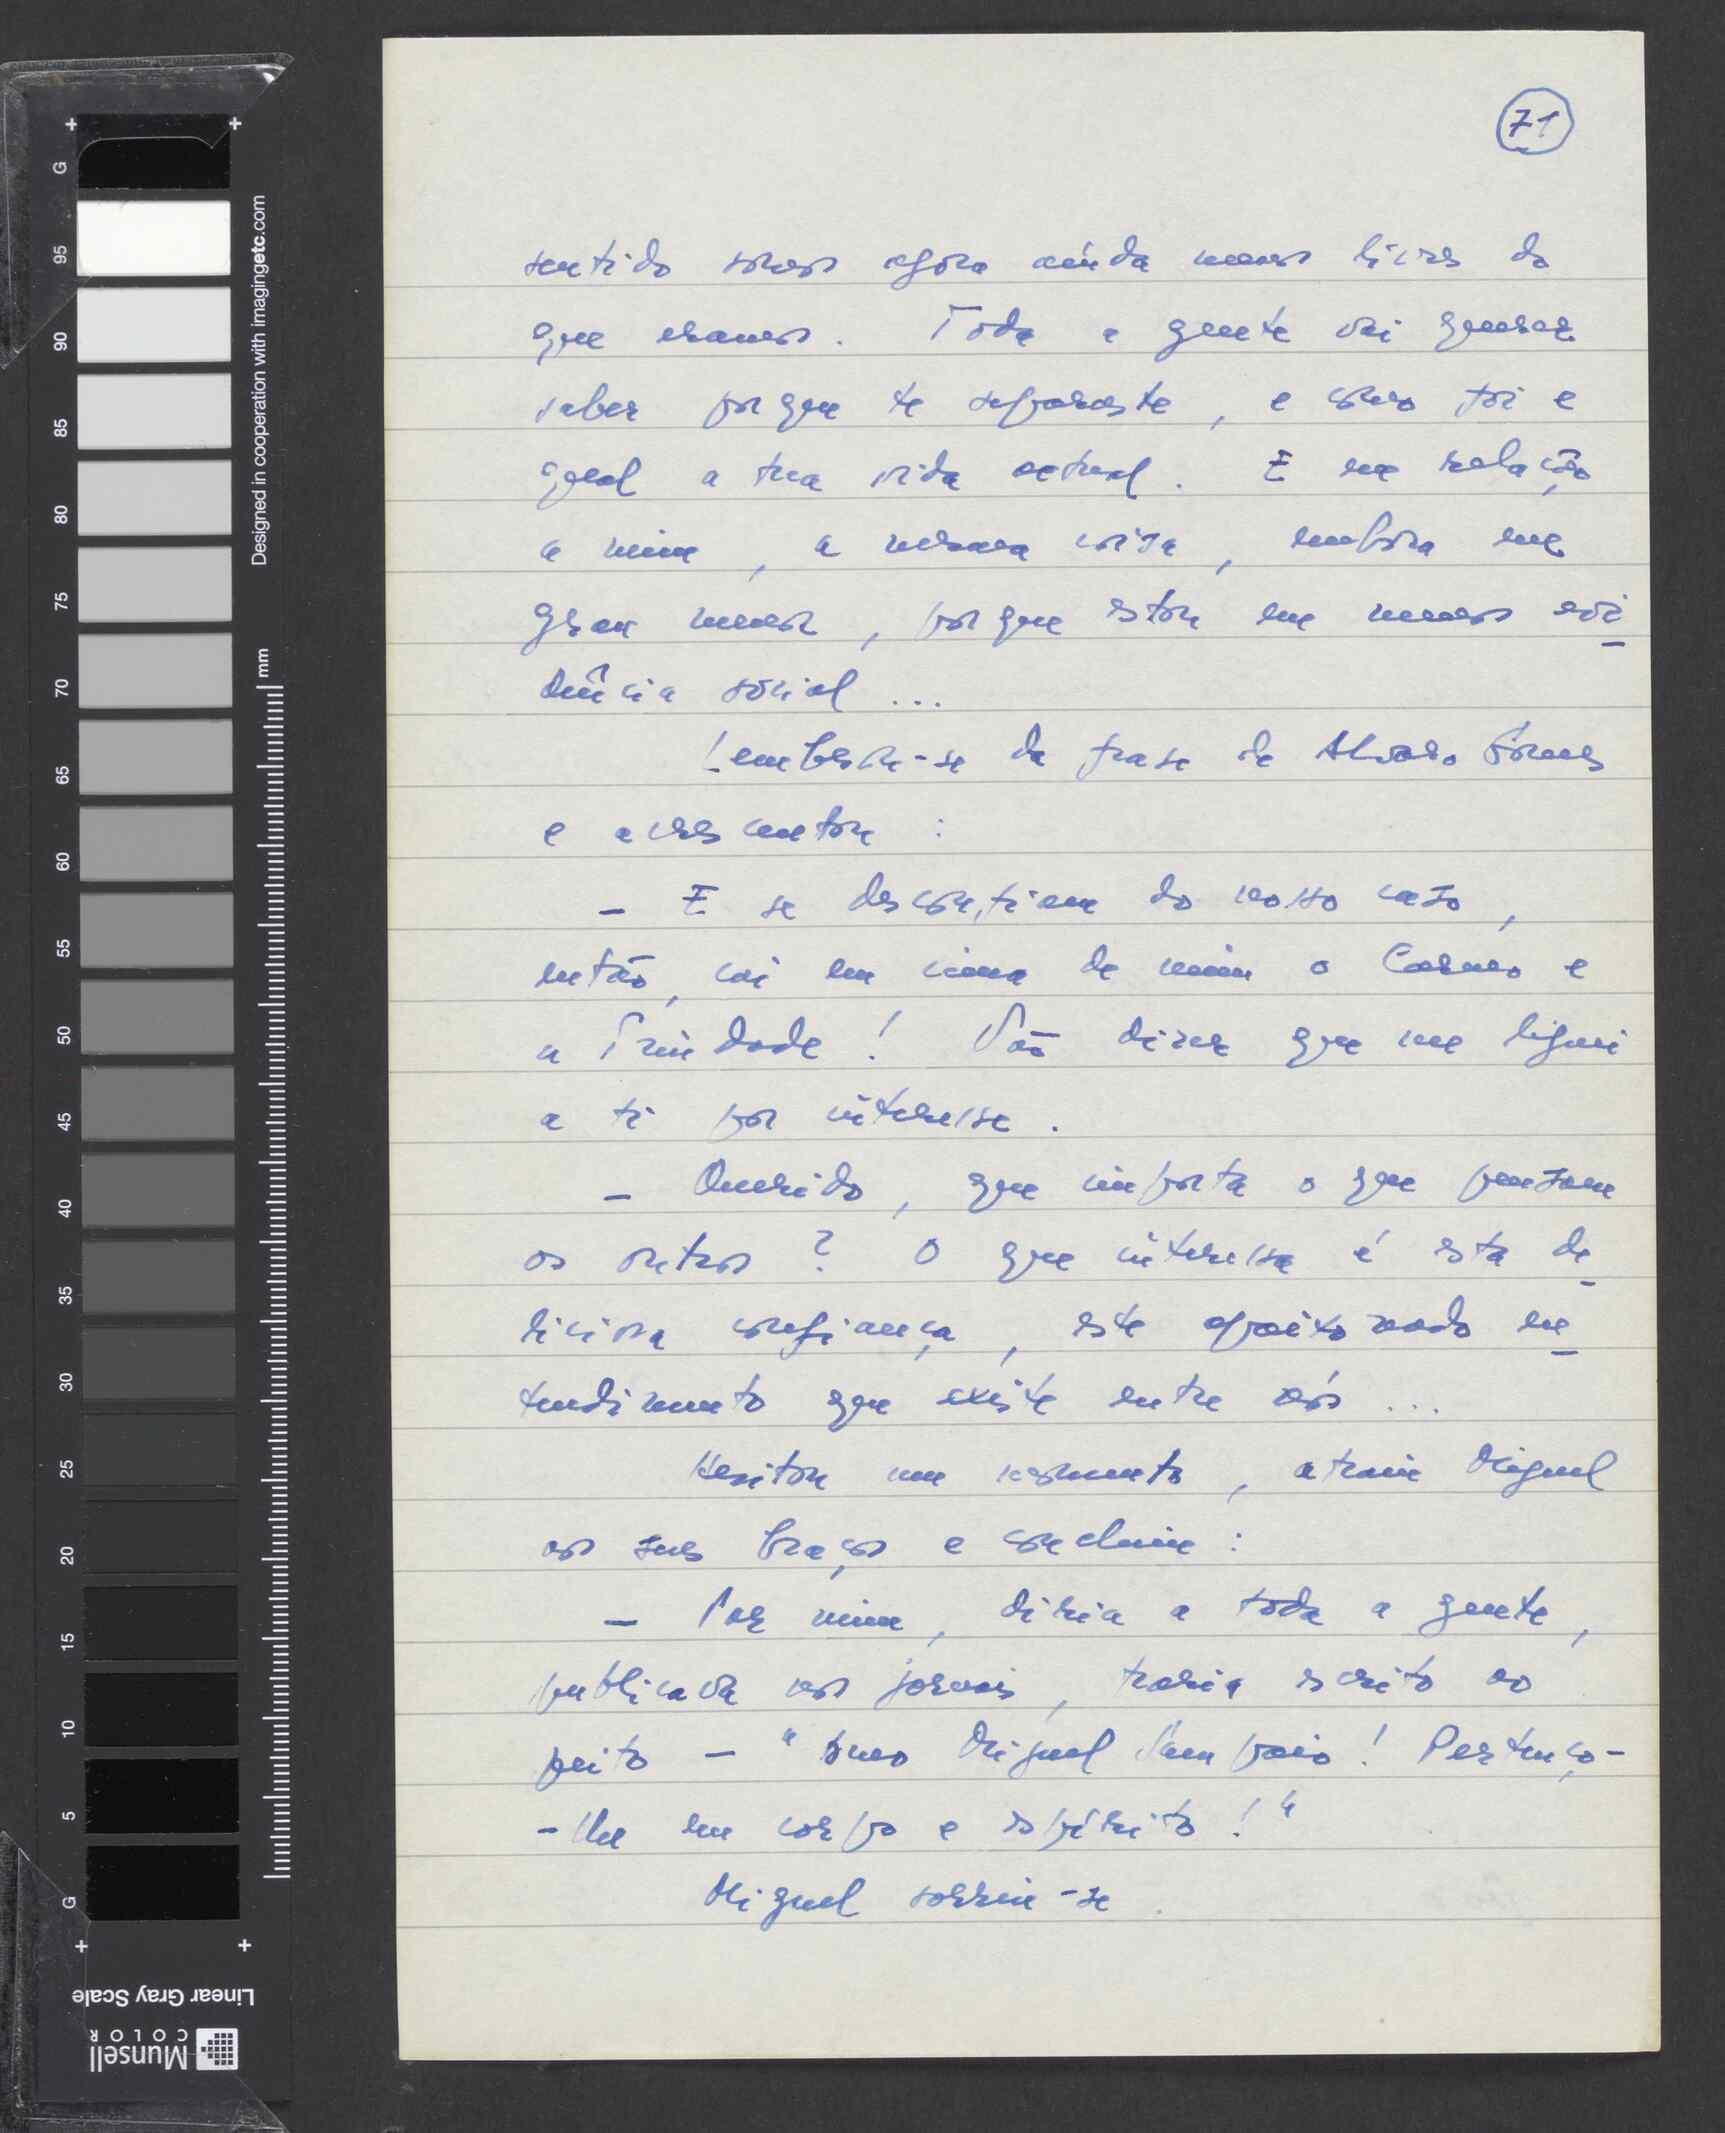 71
sentido somos agora ainda menos livres do
que éramos. Toda a gente vai querer
saber porque te separaste, e como foi e
qual a tua vida actual. E em relação
a mim, a mesma coisa, embora em
grau menor, porque estou em menos evi-
dência social...
Lembrou-se da frase de Álvaro Gomes
e acrescentou:
– E se desconfiam do nosso caso,
então, cai em cima de mim o Carmo e
a Trindade! Vão dizer que me liguei
a ti por interesse.
– Querido, que importa o que pensam
os outros? O que interessa é esta de-
liciosa confiança, este apaixonado en-
tendimento que existe entre nós...
Hesitou um momento, atraiu Miguel
aos seus braços e concluiu:
– Por mim, diria a toda a gente,
publicava nos jornais, traria escrito ao
peito – "Amo Miguel Sampaio! Pertenço-
-lhe em corpo e espírito!"
Miguel sorriu-se.
G
95
90
85
80
75
70
65
60
55
50
45
40
35
30
25
20
15
10
5
G
Designed in cooperation with imagingetc.com
mm
Linear Gray Scale
Munsell
COLOR